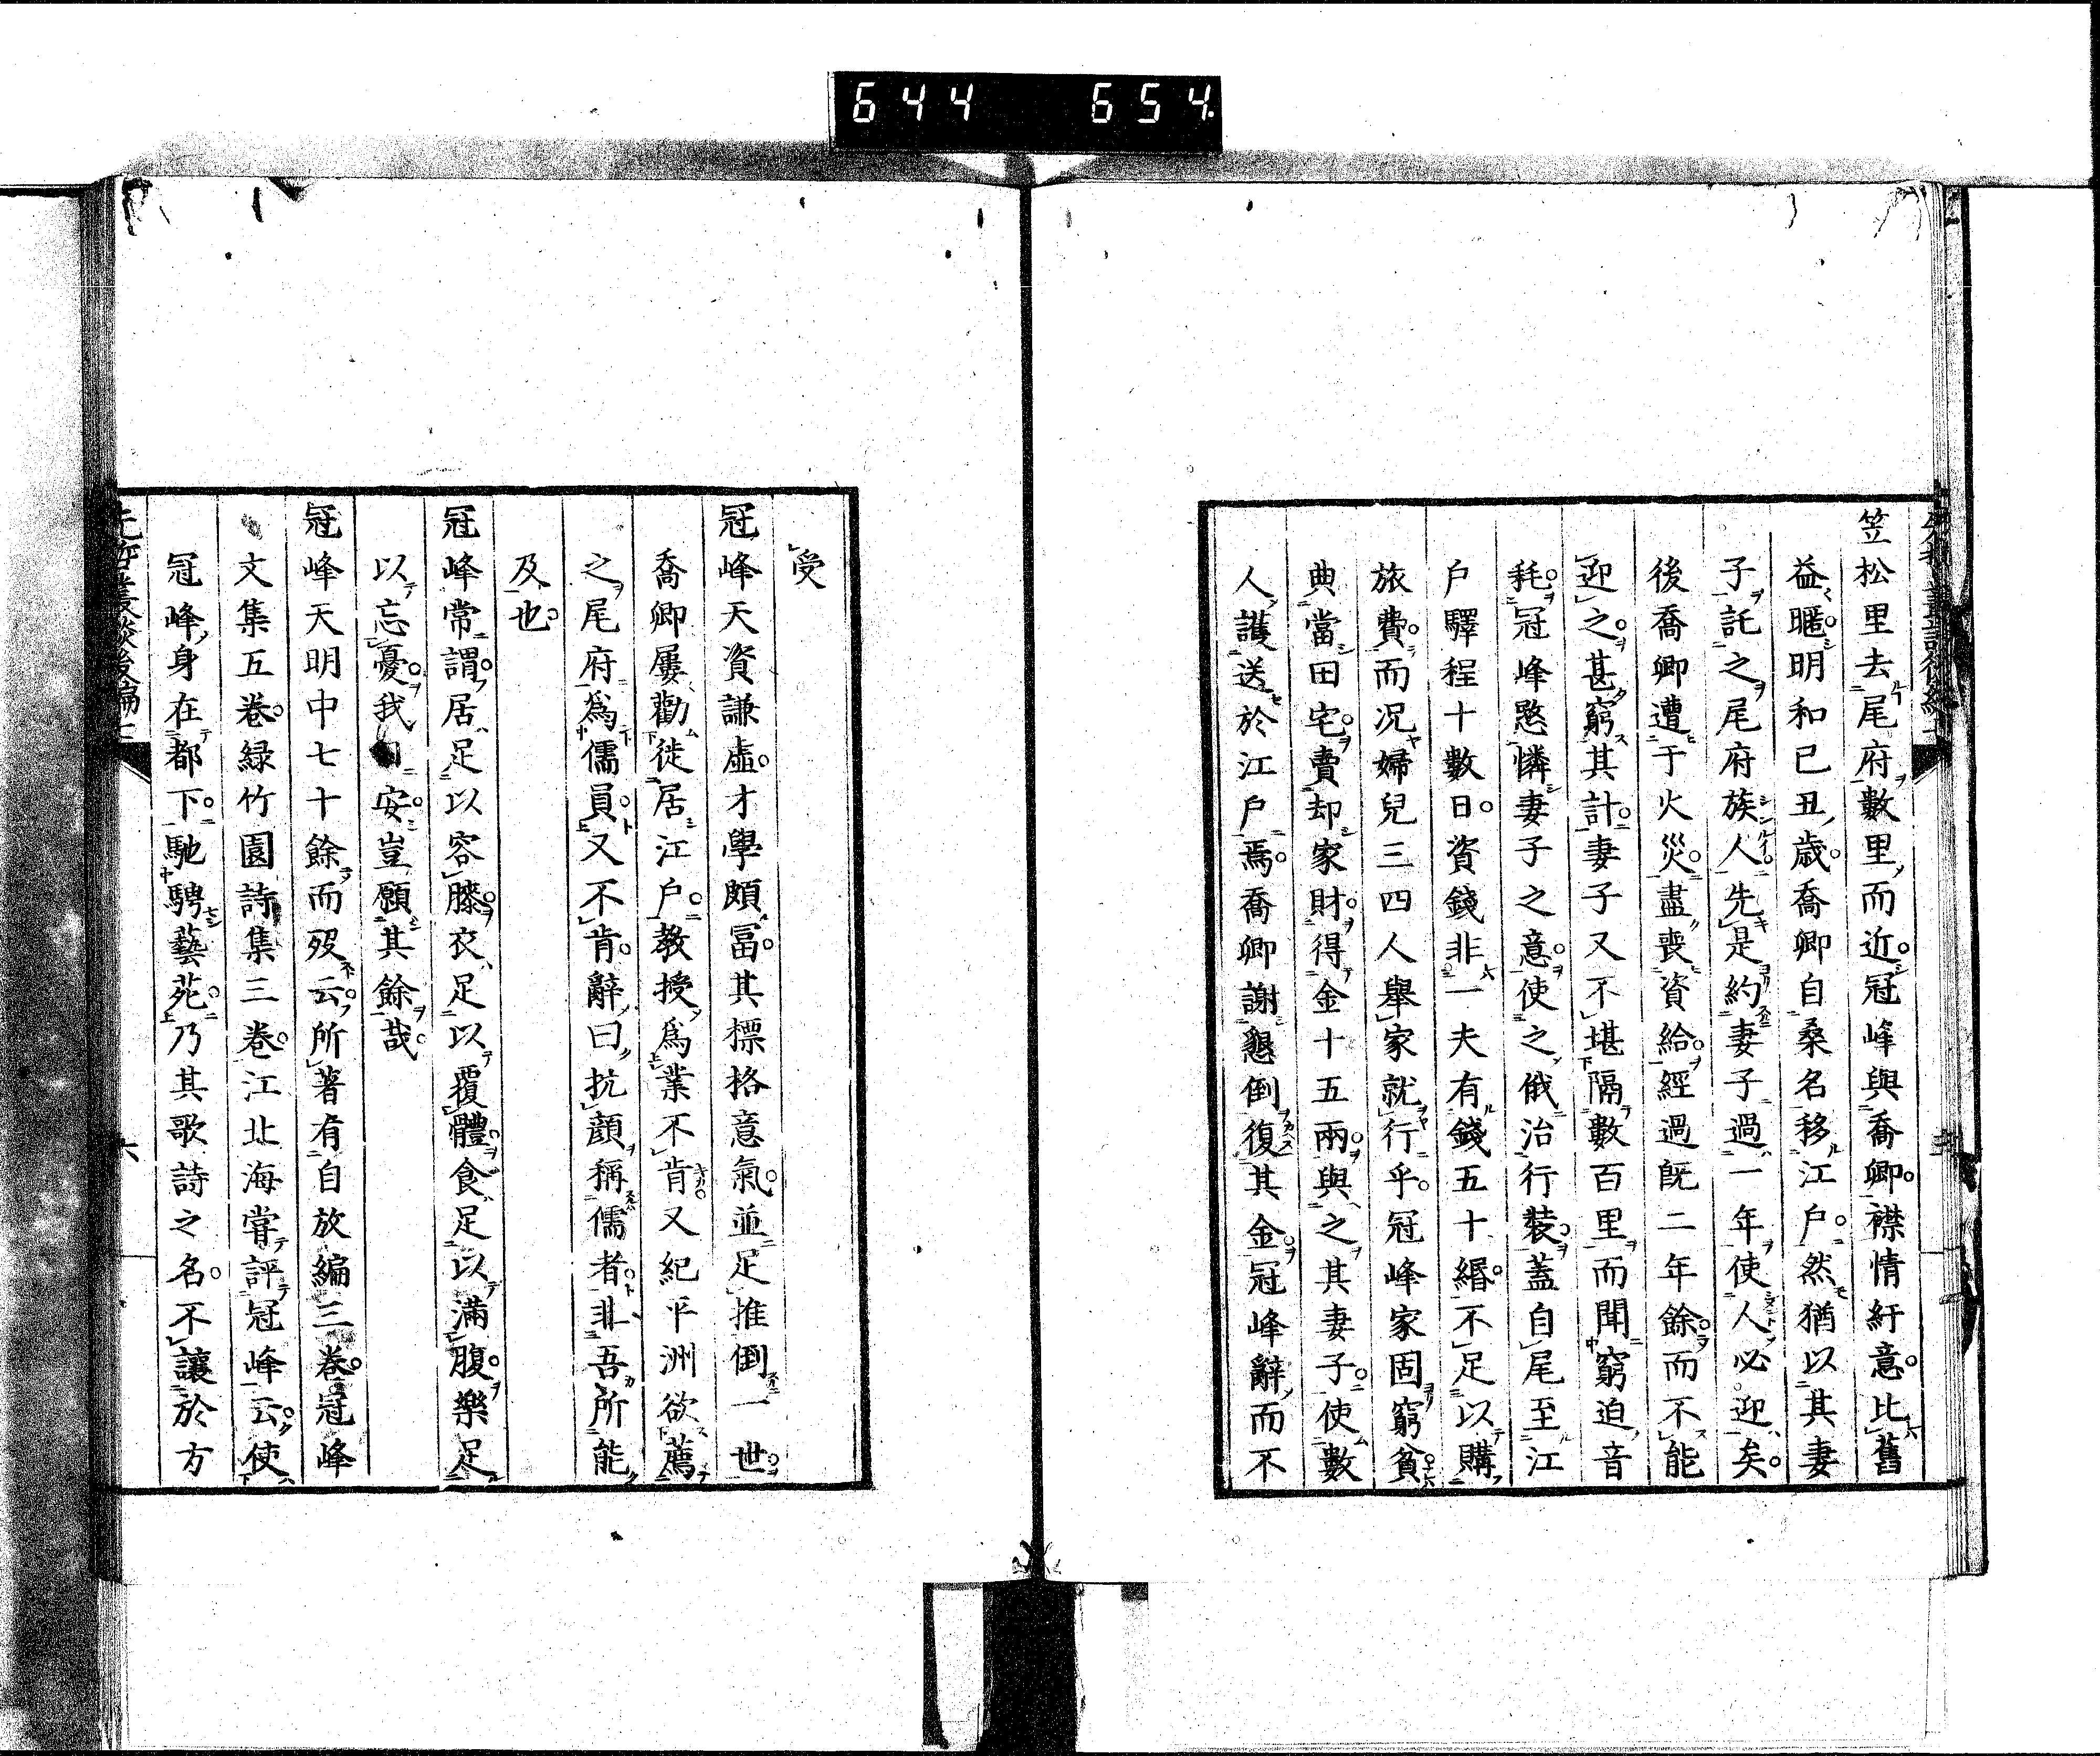 644 654.
笠松里去尾府數里而近。冠峰與喬卿。襟情紆意。比舊
益暱。明和己丑歳。喬卿自桑名移江戸。然猶以其妻
子託之尾府族人。先是約妻子過一年使人必迎矣。
後喬卿遭于火災。盡喪資給。經過既二年餘。而不能
迎之。甚窮其計。妻子又不堪隔數百里而聞窮迫音
耗。冠峰愍憐妻子之意。使之俄治行裝。蓋自尾至江
戸驛程十數日。資錢非一夫有錢五十緡。不足以購
旅費。而況婦兒三四人舉家就行乎。冠峰家固窮貧。
典當田宅。賣却家財。得金十五兩。與之其妻子。使數
人護送於江戸焉。喬卿謝懇倒復其金。冠峰辭而不
受
冠峰天資謙虛。才學頗富。其標格意氣。並足推倒一世。
喬卿屢勸徙居江戸。教授爲業不肯。又紀平洲欲薦
之尾府爲儒員。又不肯。辭曰抗顔稱儒者。非吾所能
及也。
冠峰常謂。居足以容膝。衣足以覆體。食足以滿腹。樂足
以忘憂。我安。豈願其餘哉。
冠峰天明中七十餘而歿云。所著有自放編三巻。冠峰
文集五巻。緑竹園詩集三巻。江北海甞評冠峰云。使
冠峰身在都下。馳騁藝苑。乃其歌詩之名。不讓於方
六